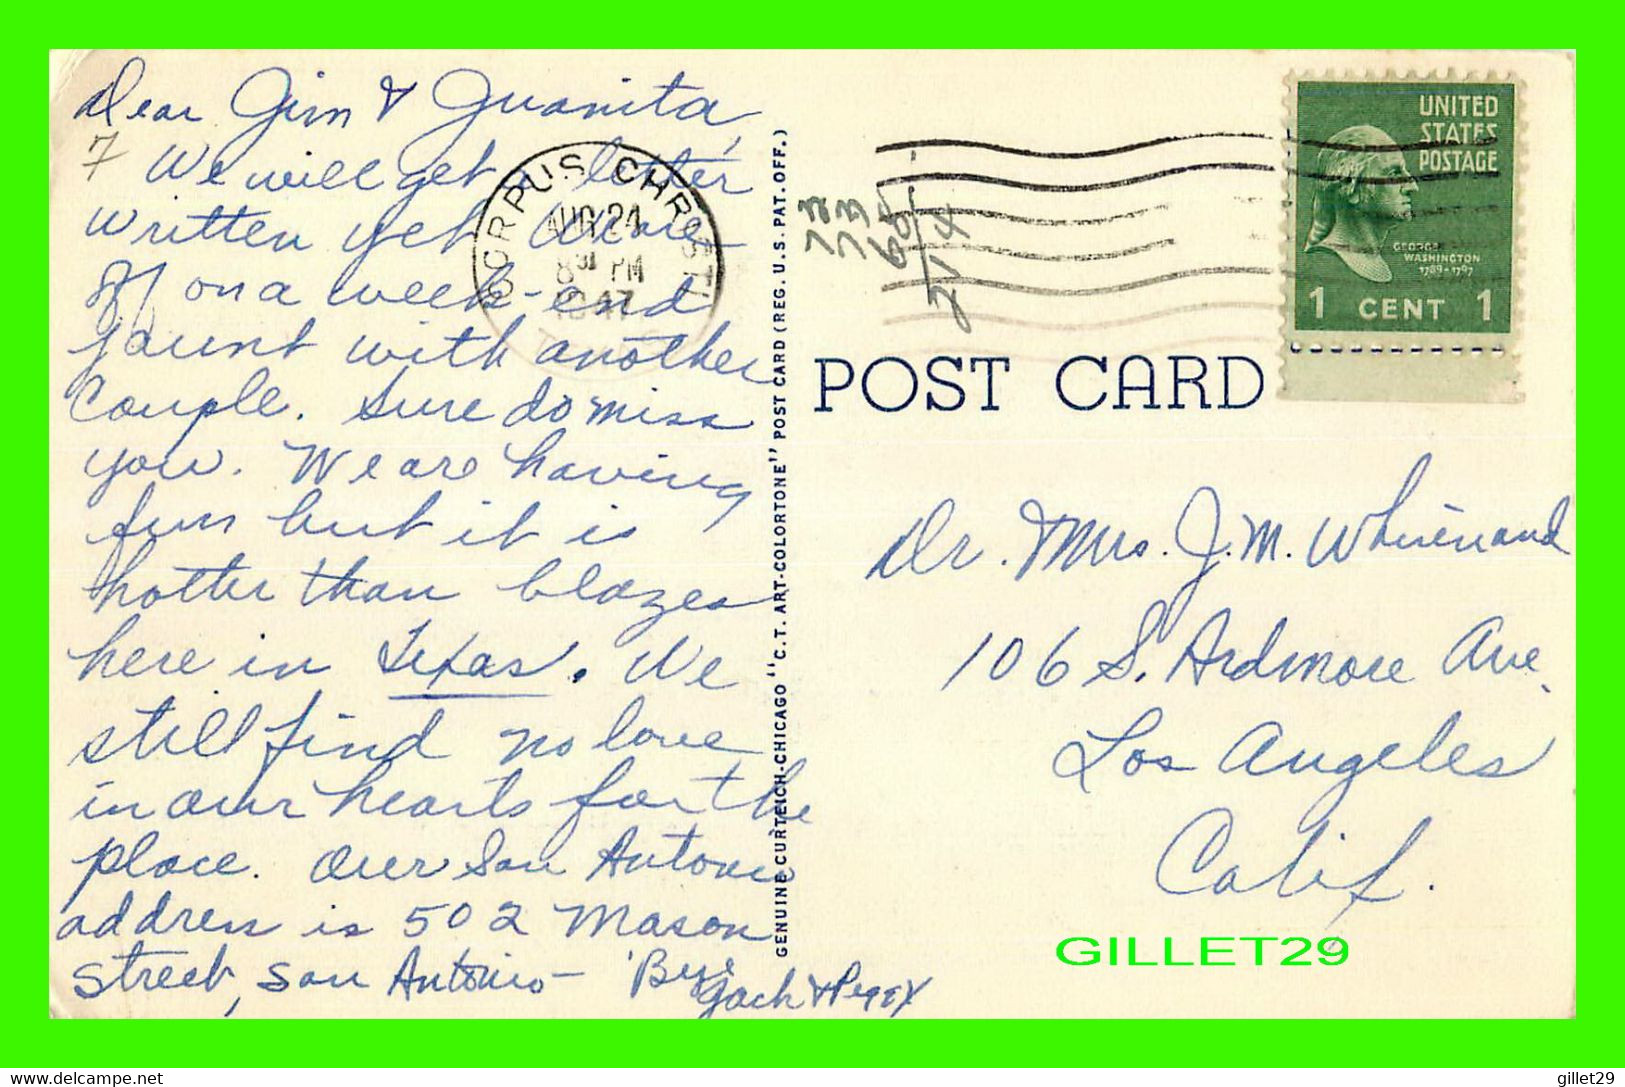 Dear Jim & Juanita,
7 We will get a letter
written yet. We are
off on a week-end
jaunt with another
couple. Sure do miss
you. We are having
fun but it is
hotter than blazes
here in Texas. We
still find no love
in our hearts for the
place. Our San Antonio
address is 502 Mason
Street, San Antonio - 'Bye
Jack & Peggy
CORPUS CHRISTI
AUG 24
8 PM
1947
TEXAS
GENUINE CURTEICH-CHICAGO "C.T. ART-COLORTONE" POST CARD (REG. U.S. PAT. OFF.)
UNITED
STATES
POSTAGE
GEORGE
WASHINGTON
1789-1797
1 CENT 1
POST CARD
Dr. & Mrs. J. M. Whinenand
106 S. Ardmore Ave.
Los Angeles
Calif.
GILLET29
gillet29
www.delcampe.net